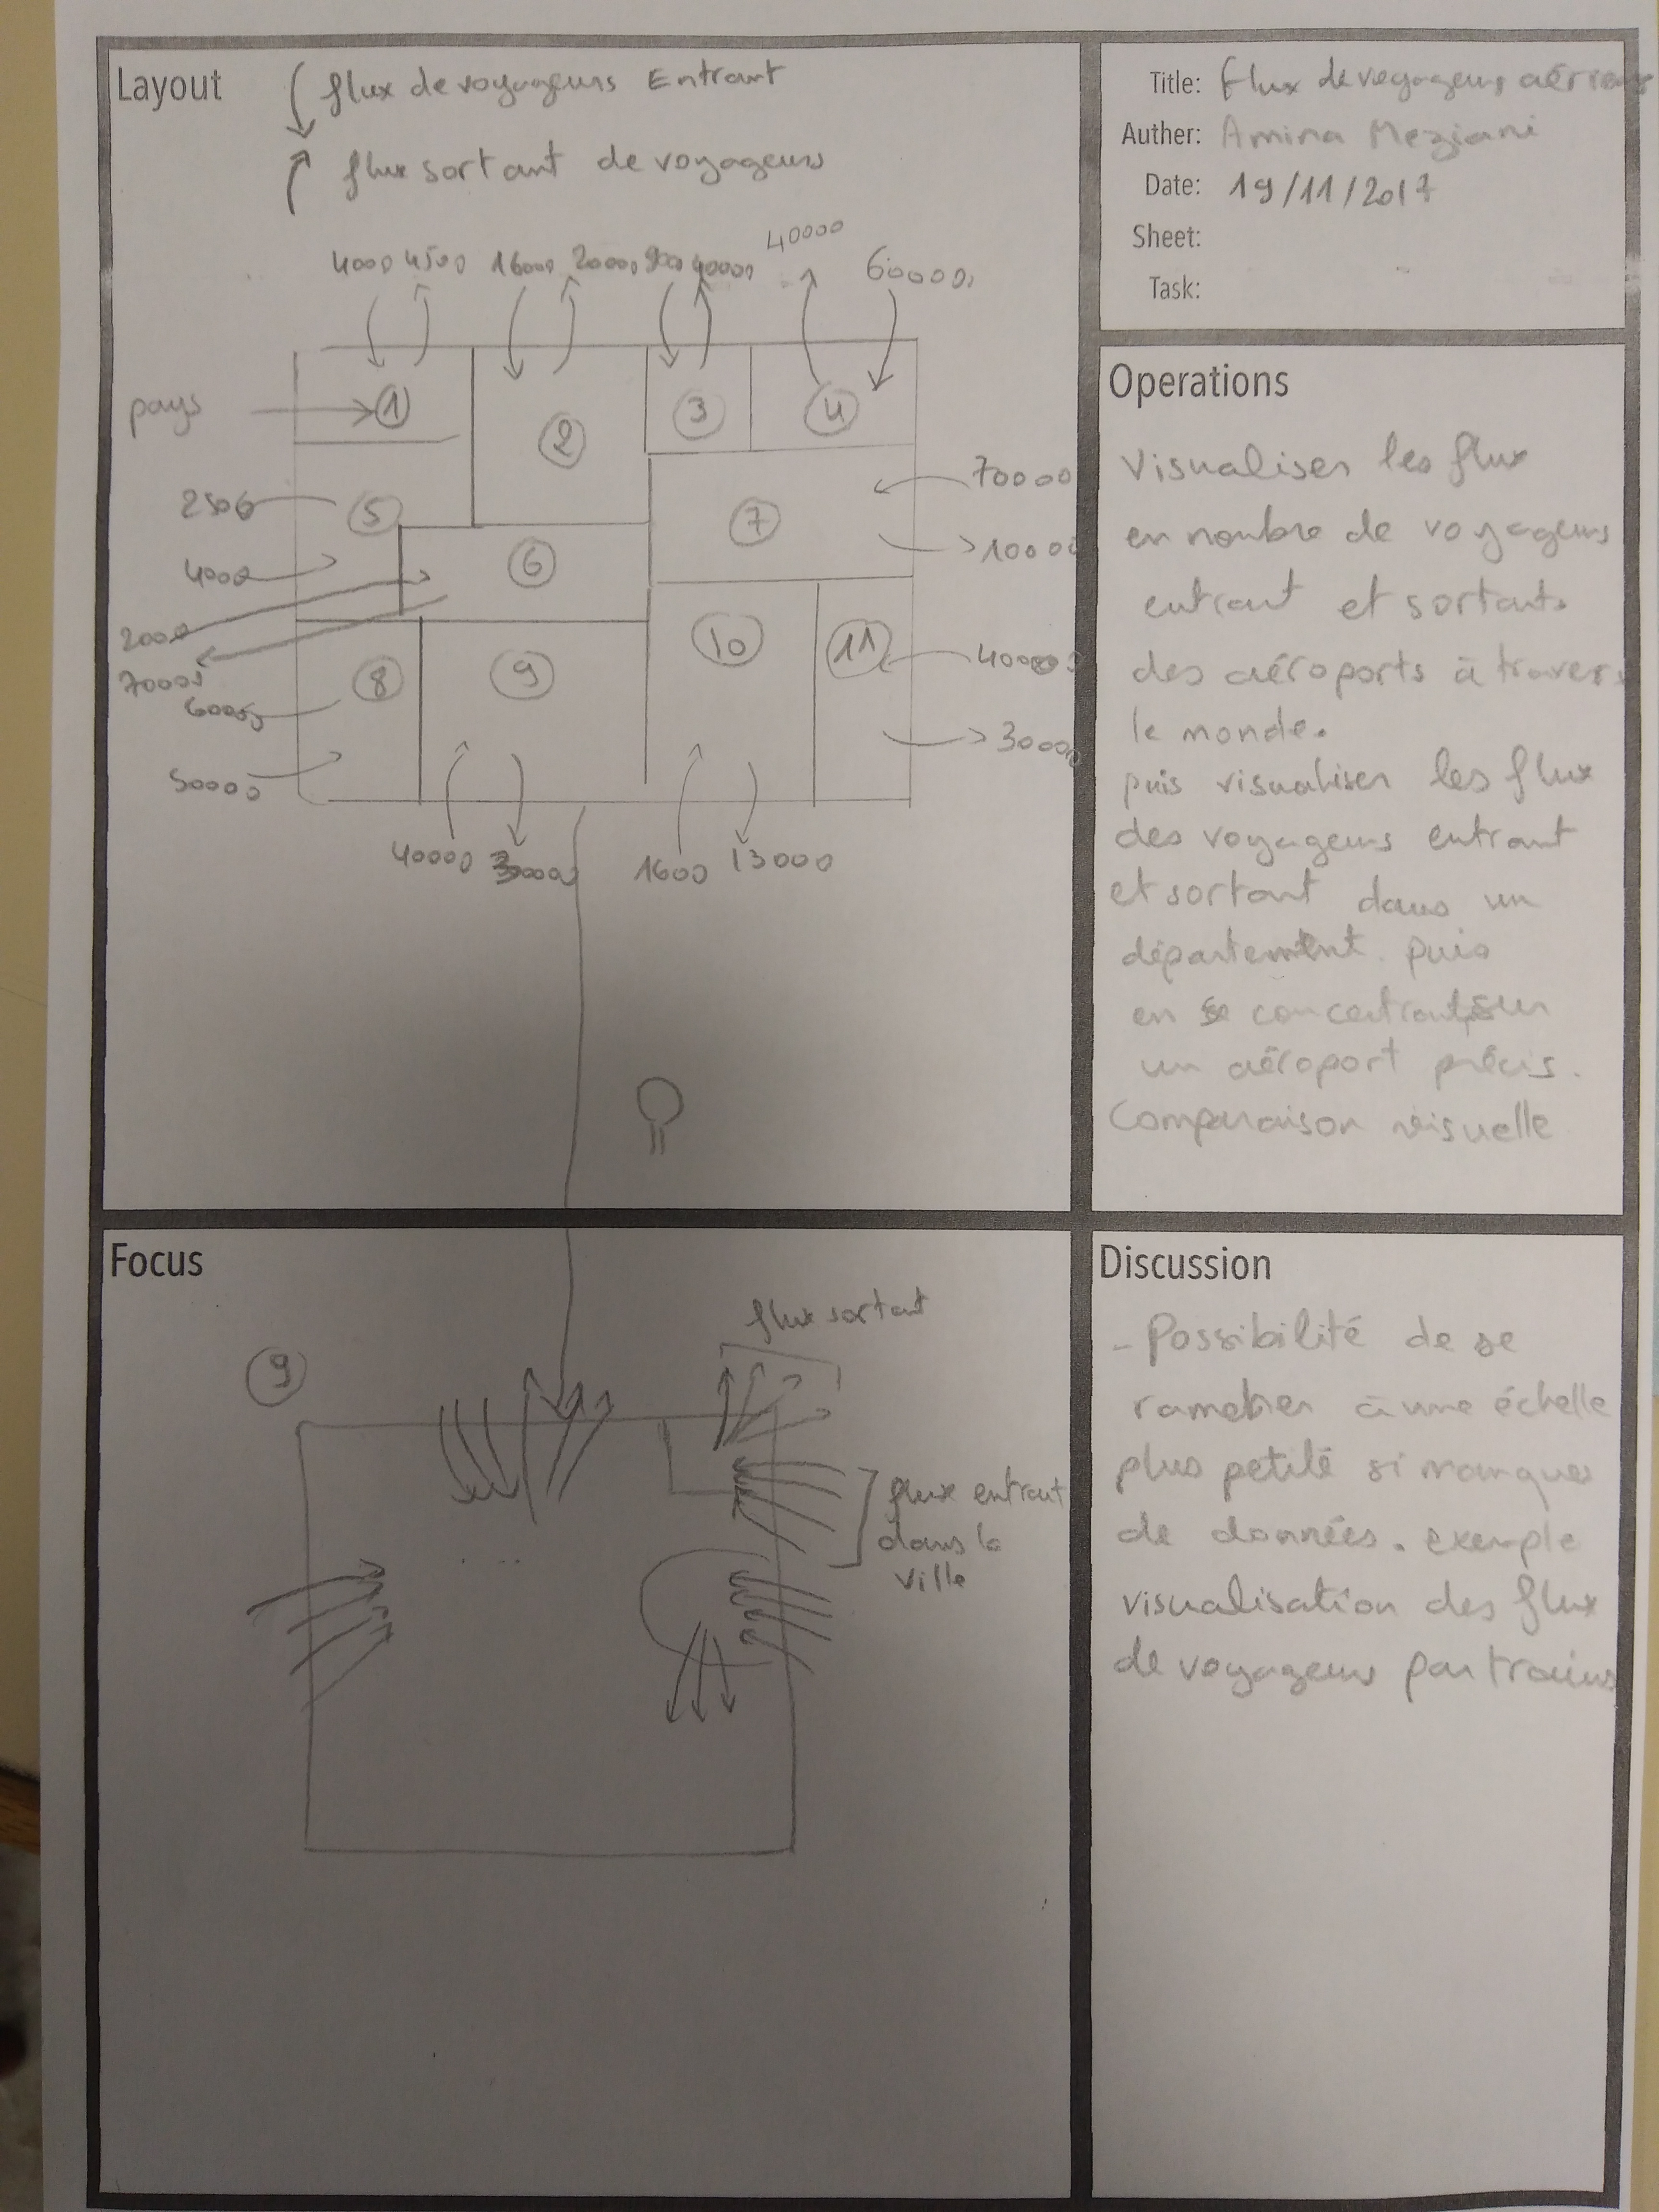 Layout
flux de voyageurs Entrant
flux sortant de voyageurs
4000 4500 16000 20000 40000 40000 60000
pays
1
2
3
4
5
6
7
8
9
10
11
2500
4000
2000
70000
60000
50000
70000
10000
40000
30000
40000 30000 1600 13000
Title: flux de voyageurs aériens
Auther: Amina Meziani
Date: 19/11/2017
Sheet:
Task:
Operations
Visualiser les flux
en nombre de voyageurs
entrant et sortants
des aéroports à travers
le monde.
puis visualiser les flux
des voyageurs entrant
et sortant dans un
département. puis
en se concentrant sur
un aéroport précis.
Comparaison visuelle
Focus
9
flux sortant
flux entrant
dans la
ville
Discussion
- Possibilité de se
ramener à une échelle
plus petite si manque
de données. exemple
visualisation des flux
de voyageurs par trains